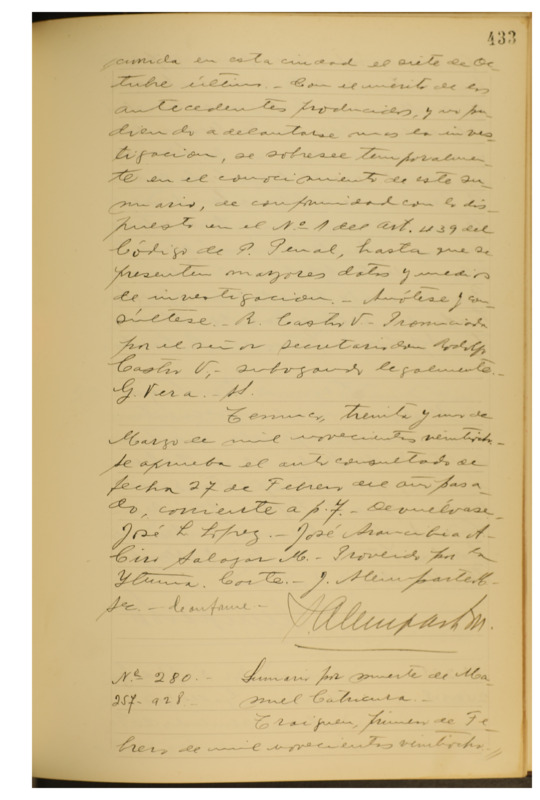 433
currida en esta ciudad el siete de Oc
tubre último.- Con el mérito de los
antecedentes producidos, y no pu
diendo adelantarse mas la inves-
tigacion, se sobresee temporalmen-
te en el conocimiento de este su-
mario, de conformidad con lo dis-
puesto en el Nº 1 del art. 439 del
Código de P. Penal, hasta que se
presenten mayores datos y medios
de investigacion.- Anótese y con-
súltese.- R. Castro V- Pronunciada
por el señor secretario don Rodolfo
Castro V,- subogando legalmente.-
G. Vera.- S.
Temuco, treinta y uno de
Marzo de mil novecientos veintiocho-
Se aprueba el auto consultado de
fecha 27 de Febrero del año pasa-
do, corriente a f. 7.- Devuélvase-
José L Lopez.- José Arancibia A-
Ciro Salazar M.- Proveido por la
Iltma. Corte.- J. Alemparte M-
sec- Conforme-
J. Alemparte M.
Nº 280.- Sumario por muerte de Ma-
257-928- nuel Catricura.-
Traiguen, primero de Fe-
brero de mil novecientos veintiocho.-